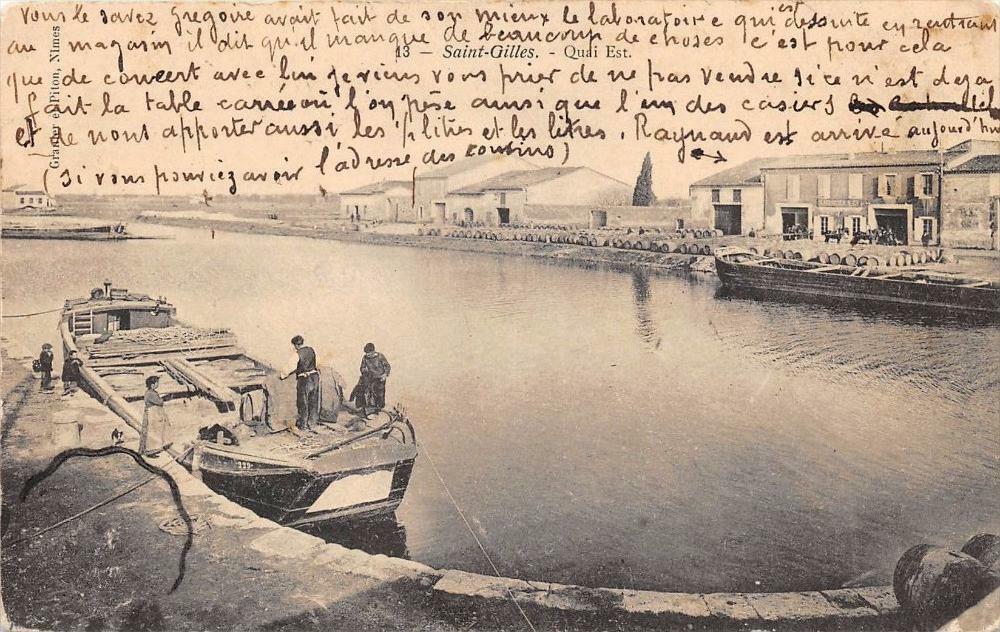 Vous le savez Gregoire avait fait de son mieux le laboratoire e qui est dessuite en rentrant
au magasin il dit qu'il manque de beaucoup de choses c'est pour cela
13 — Saint-Gilles. - Quai Est.
que de concert avec lui je viens vous prier de ne pas vendre si ce n'est deja
fait la table carrée où l'on pèse ainsi que l'un des casiers
et de nous apporter aussi les ½ litres et les litres. Raynaud est arrivé aujourd'hui
(Si vous pouviez avoir l'adresse des cousins)
Granier et Piton, Nimes